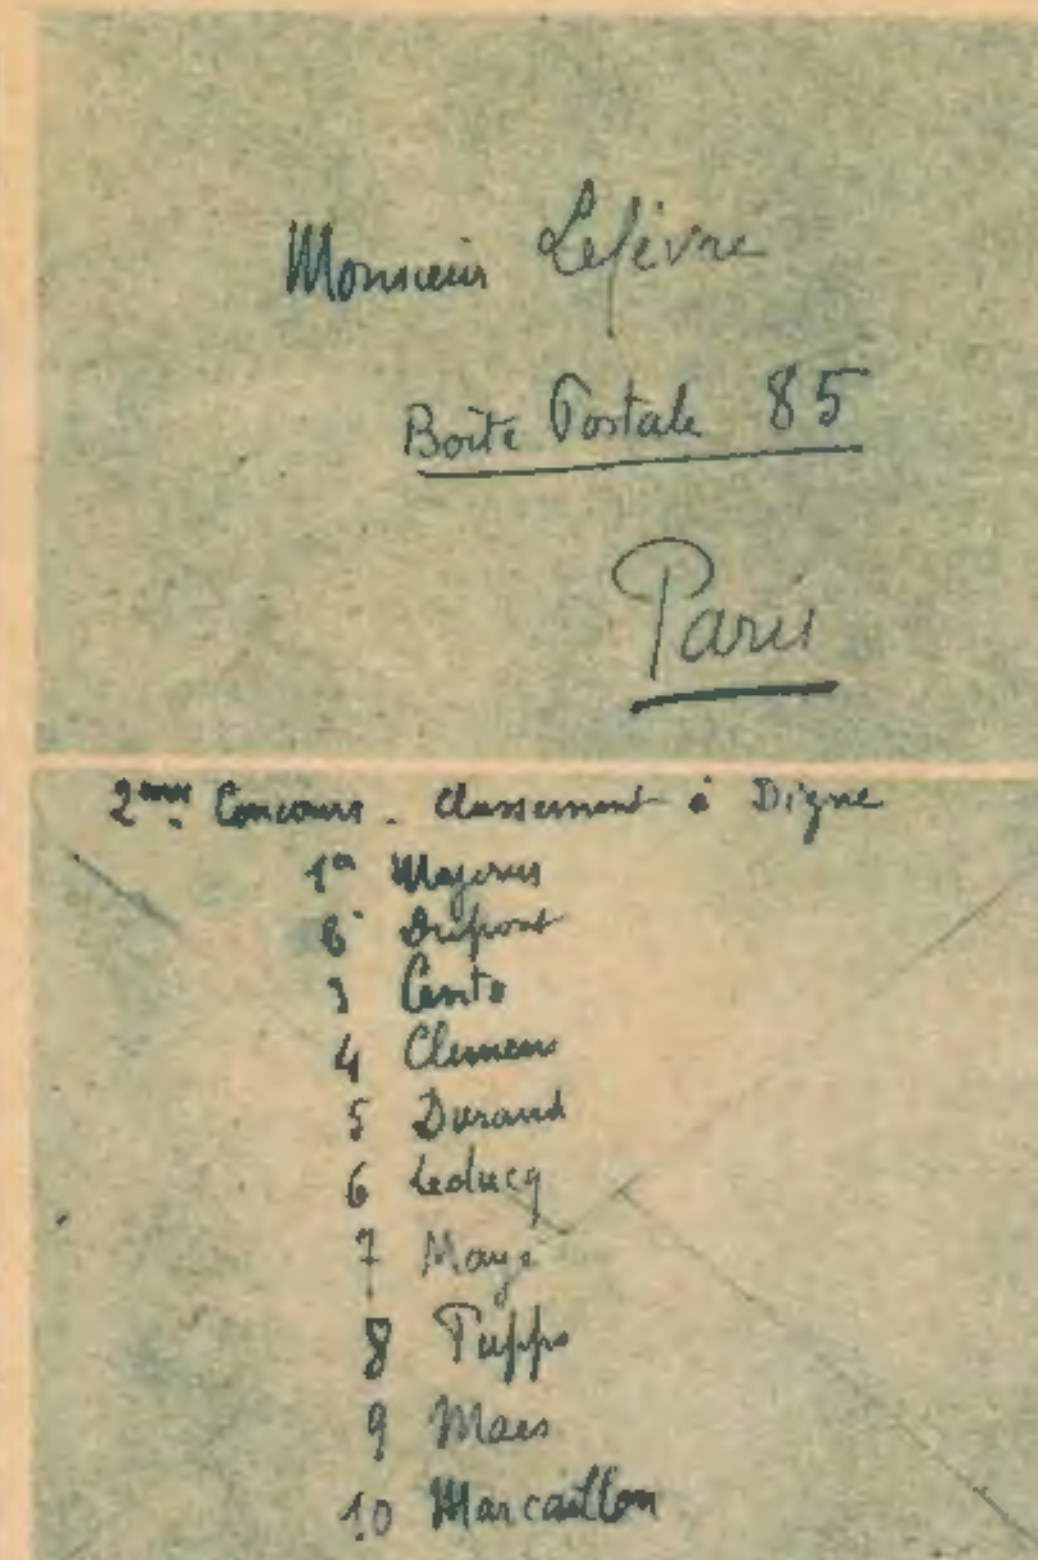 Monsieur Lefèvre
Boîte Postale 85
Paris
2ème Concours. Classement à Digne
1er Majerus
2 Dupont
3 Cento
4 Clemens
5 Durand
6 Leducq
7 Maye
8 Puppo
9 Maes
10 Marcaillon